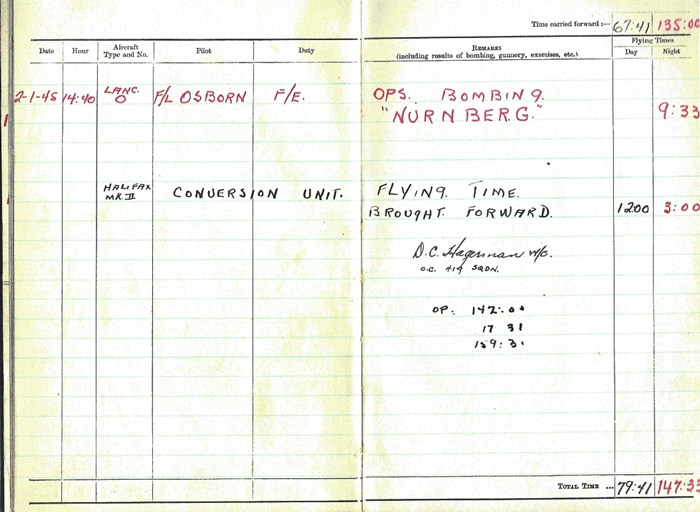 Time carried forward:— 67:41 135:00
Date Hour Aircraft Type and No. Pilot Duty Remarks (including results of bombing, gunnery, exercises, etc.) Flying Times
Day Night
2-1-45 14:40 LANC. O F/L OSBORN F/E. OPS. BOMBING.
"NURNBERG." 9:33
HALIFAX MK.II CONVERSION UNIT. FLYING. TIME.
BROUGHT FORWARD. 1200 3:00
D.C. Hagerman W/C.
O.C. 419 SQDN.
OP. 142:00
17 31
159:31
Total Time ... 79:41 147:33